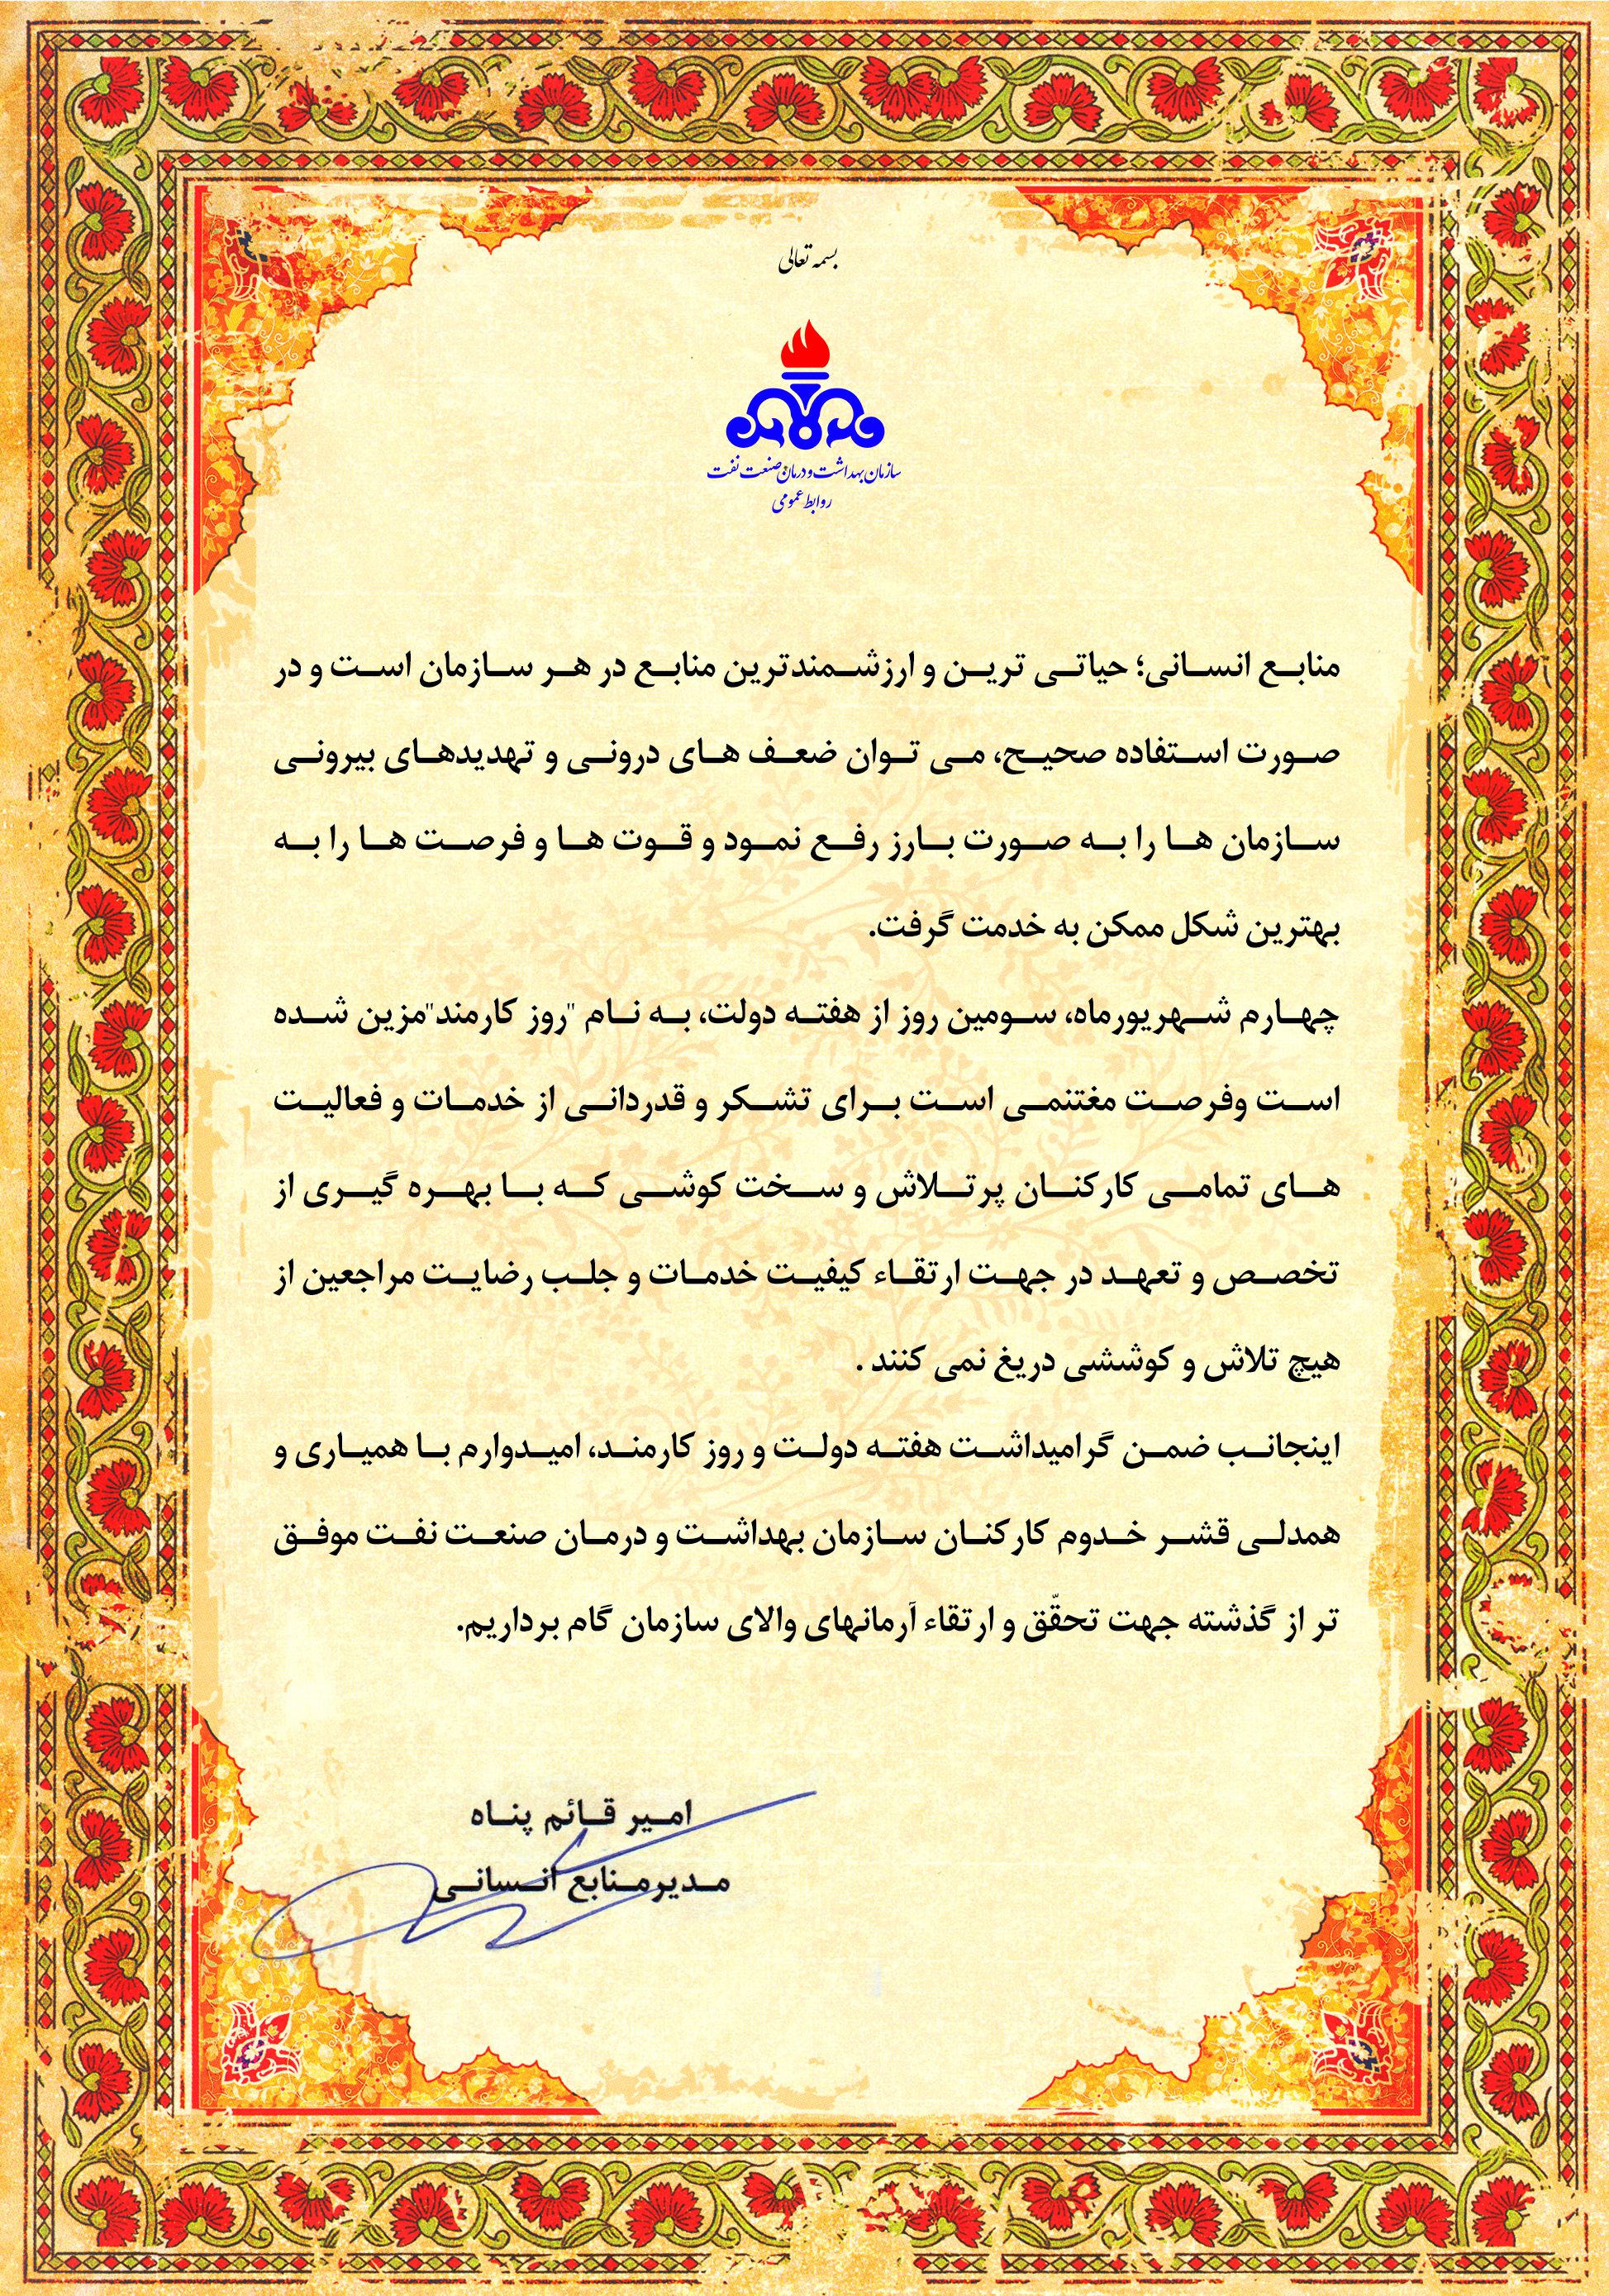 بسمه تعالی
سازمان بهداشت و درمان صنعت نفت
روابط عمومی
منابع انسانی؛ حیاتی ترین و ارزشمندترین منابع در هر سازمان است و در
صورت استفاده صحیح، می توان ضعف های درونی و تهدیدهای بیرونی
سازمان ها را به صورت بارز رفع نمود و قوت ها و فرصت ها را به
بهترین شکل ممکن به خدمت گرفت.
چهارم شهریورماه، سومین روز از هفته دولت، به نام "روز کارمند"مزین شده
است وفرصت مغتنمی است برای تشکر و قدردانی از خدمات و فعالیت
های تمامی کارکنان پرتلاش و سخت کوشی که با بهره گیری از
تخصص و تعهد در جهت ارتقاء کیفیت خدمات و جلب رضایت مراجعین از
هیچ تلاش و کوششی دریغ نمی کنند .
اینجانب ضمن گرامیداشت هفته دولت و روز کارمند، امیدوارم با همیاری و
همدلی قشر خدوم کارکنان سازمان بهداشت و درمان صنعت نفت موفق
تر از گذشته جهت تحقّق و ارتقاء آرمانهای والای سازمان گام برداریم.
امیر قائم پناه
مدیرمنابع انسانی